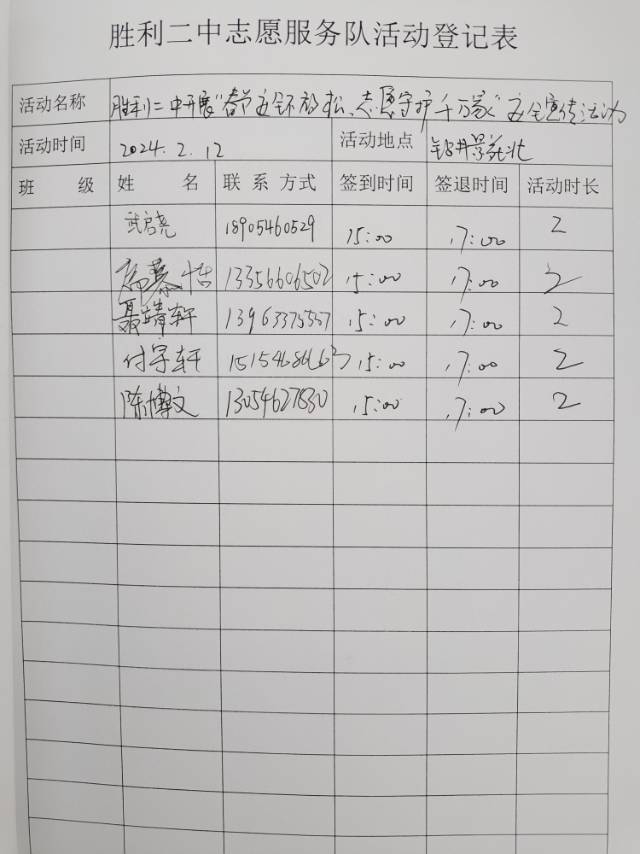 胜利二中志愿服务队活动登记表
活动名称 胜利二中开展"春节安全不放松、志愿守护千万家"安全宣传活动
活动时间 2024.2.12 活动地点 钻井景苑北
班 级 姓 名 联 系 方式 签到时间 签退时间 活动时长
武启尧 18905460529 15:00 17:00 2
慕恬 13356606502 15:00 17:00 2
聂靖轩 13963375537 15:00 17:00 2
付宇轩 15:00 17:00 2
陈博文 13054627830 15:00 17:00 2